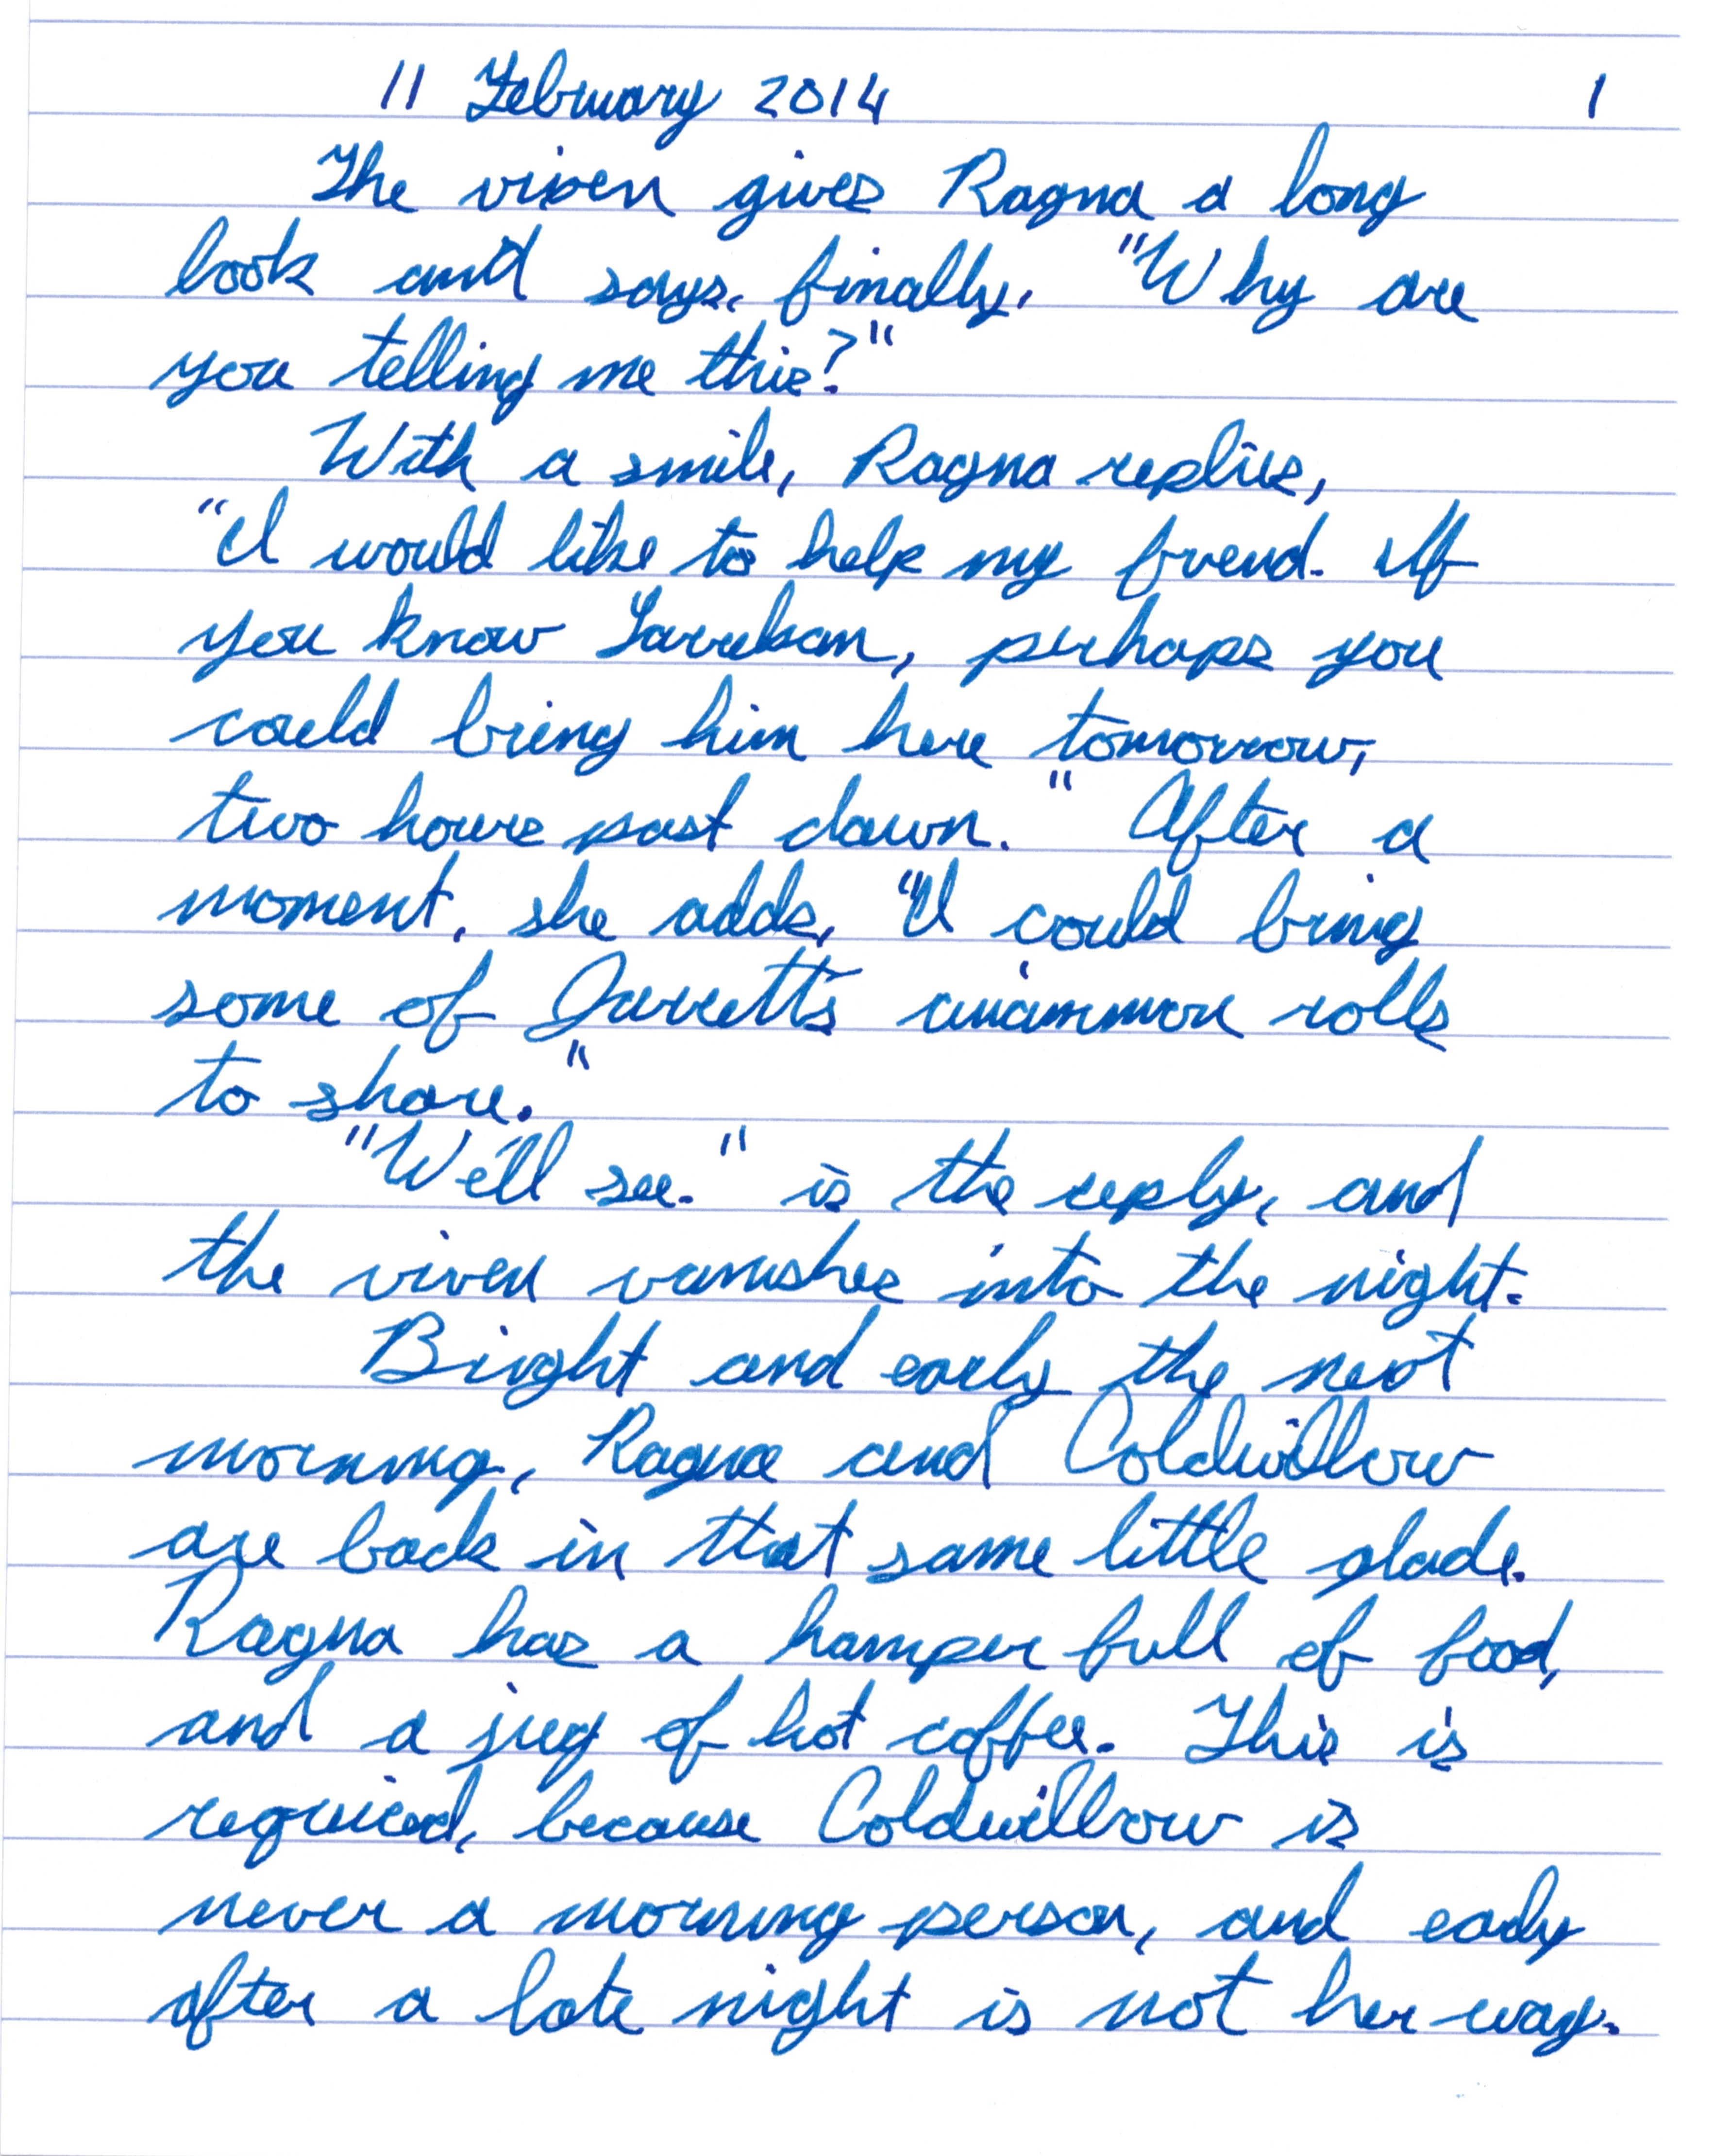 11 February 2014 1
The vixen gives Ragna a long
look and says, finally, "Why are
you telling me this?"
With a smile, Ragna replies,
"I would like to help my friend. If
you know, perhaps you
could bring him here tomorrow,
two hours past dawn." After a
moment, she adds, "I could bring
some of Jarrett's cinnamon rolls
to share."
"We'll see." is the reply, and
the vixen vanishes into the night.
Bright and early the next
morning, Ragna and Coldwillow
are back in that same little glade.
Ragna has a hamper full of food,
and a jug of hot coffee. This is
required, because Coldwillow is
never a morning person, and early
after a late night is not her way.